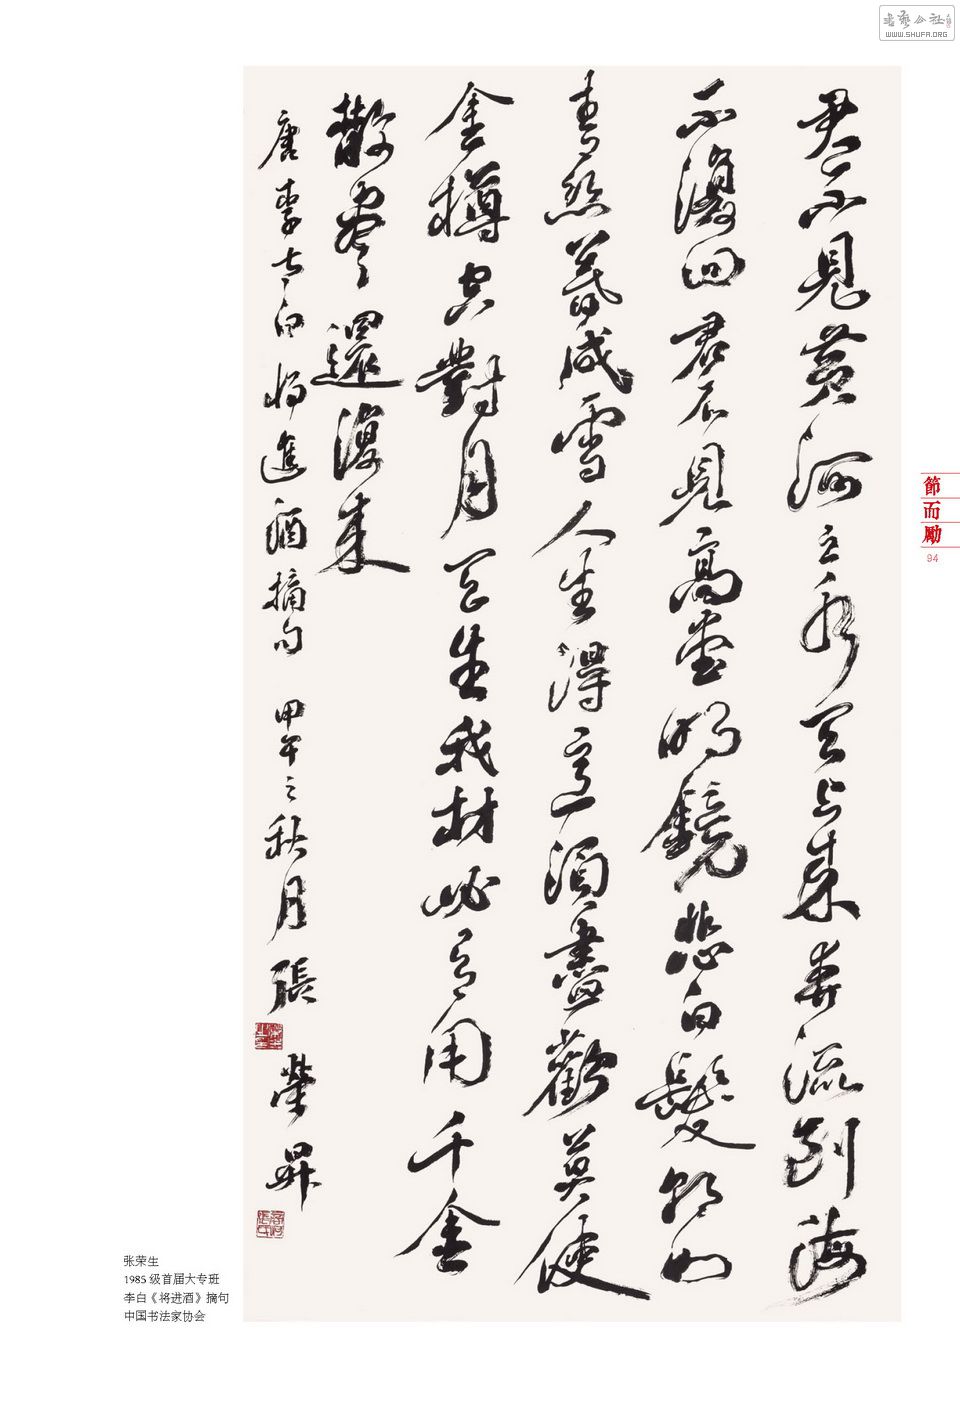 君不見黃河之水天上来奔流到海
不復回君不見高堂明鏡悲白髮朝如
青絲暮成雪人生得意須盡歡莫使
金樽空對月天生我材必有用千金
散盡還復来
唐李太白将進酒摘句 甲午之秋月 張榮昇
张荣生
1985 级首届大专班
李白《将进酒》摘句
中国书法家协会
節而勵
94
书艺公社
WWW.SHUFA.ORG